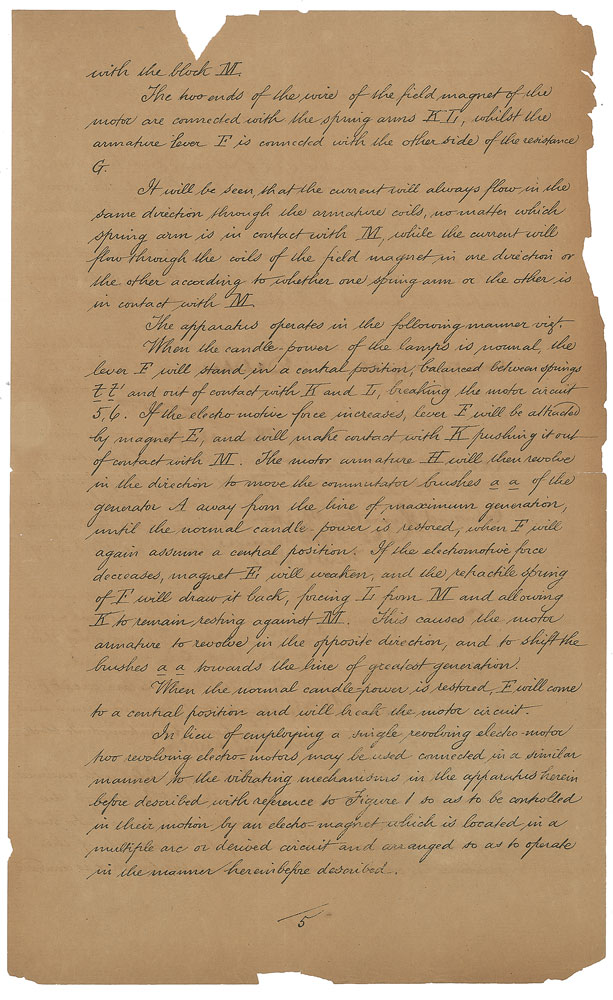 with the block M.
The two ends of the wire of the field magnet of the
motor are connected with the spring arms K L, whilst the
armature lever F is connected with the other side of the resistance
G.
It will be seen, that the current will always flow in the
same direction through the armature coils, no matter which
spring arm is in contact with M, while the current will
flow through the coils of the field magnet in one direction or
the other according to whether one spring arm or the other is
in contact with M.
The apparatus operates in the following manner vizt.
When the candle-power of the lamps is normal, the
lever F will stand in a central position, balanced between springs
t t' and out of contact with K and L, breaking the motor circuit
5,6. If the electro motive force increases, lever F will be attracted
by magnet E, and will make contact with K pushing it out
of contact with M. The motor armature H will then revolve
in the direction to move the commutator brushes a a of the
generator A away from the line of maximum generation,
until the normal candle-power is restored, when F will
again assume a central position. If the electromotive force
decreases, magnet E, will weaken, and the retractile spring
of F will draw it back, forcing L from M and allowing
K to remain resting against M. This causes the motor
armature to revolve in the opposite direction, and to shift the
brushes a a towards the line of greatest generation.
When the normal candle-power is restored, F will come
to a central position and will break the motor circuit.
In lieu of employing a single revolving electro-motor
two revolving electro-motors may be used connected in a similar
manner to the vibrating mechanisms in the apparatus herein
before described with reference to Figure 1 so as to be controlled
in their motion by an electro-magnet which is located in a
multiple arc or derived circuit and arranged so as to operate
in the manner hereinbefore described.
5